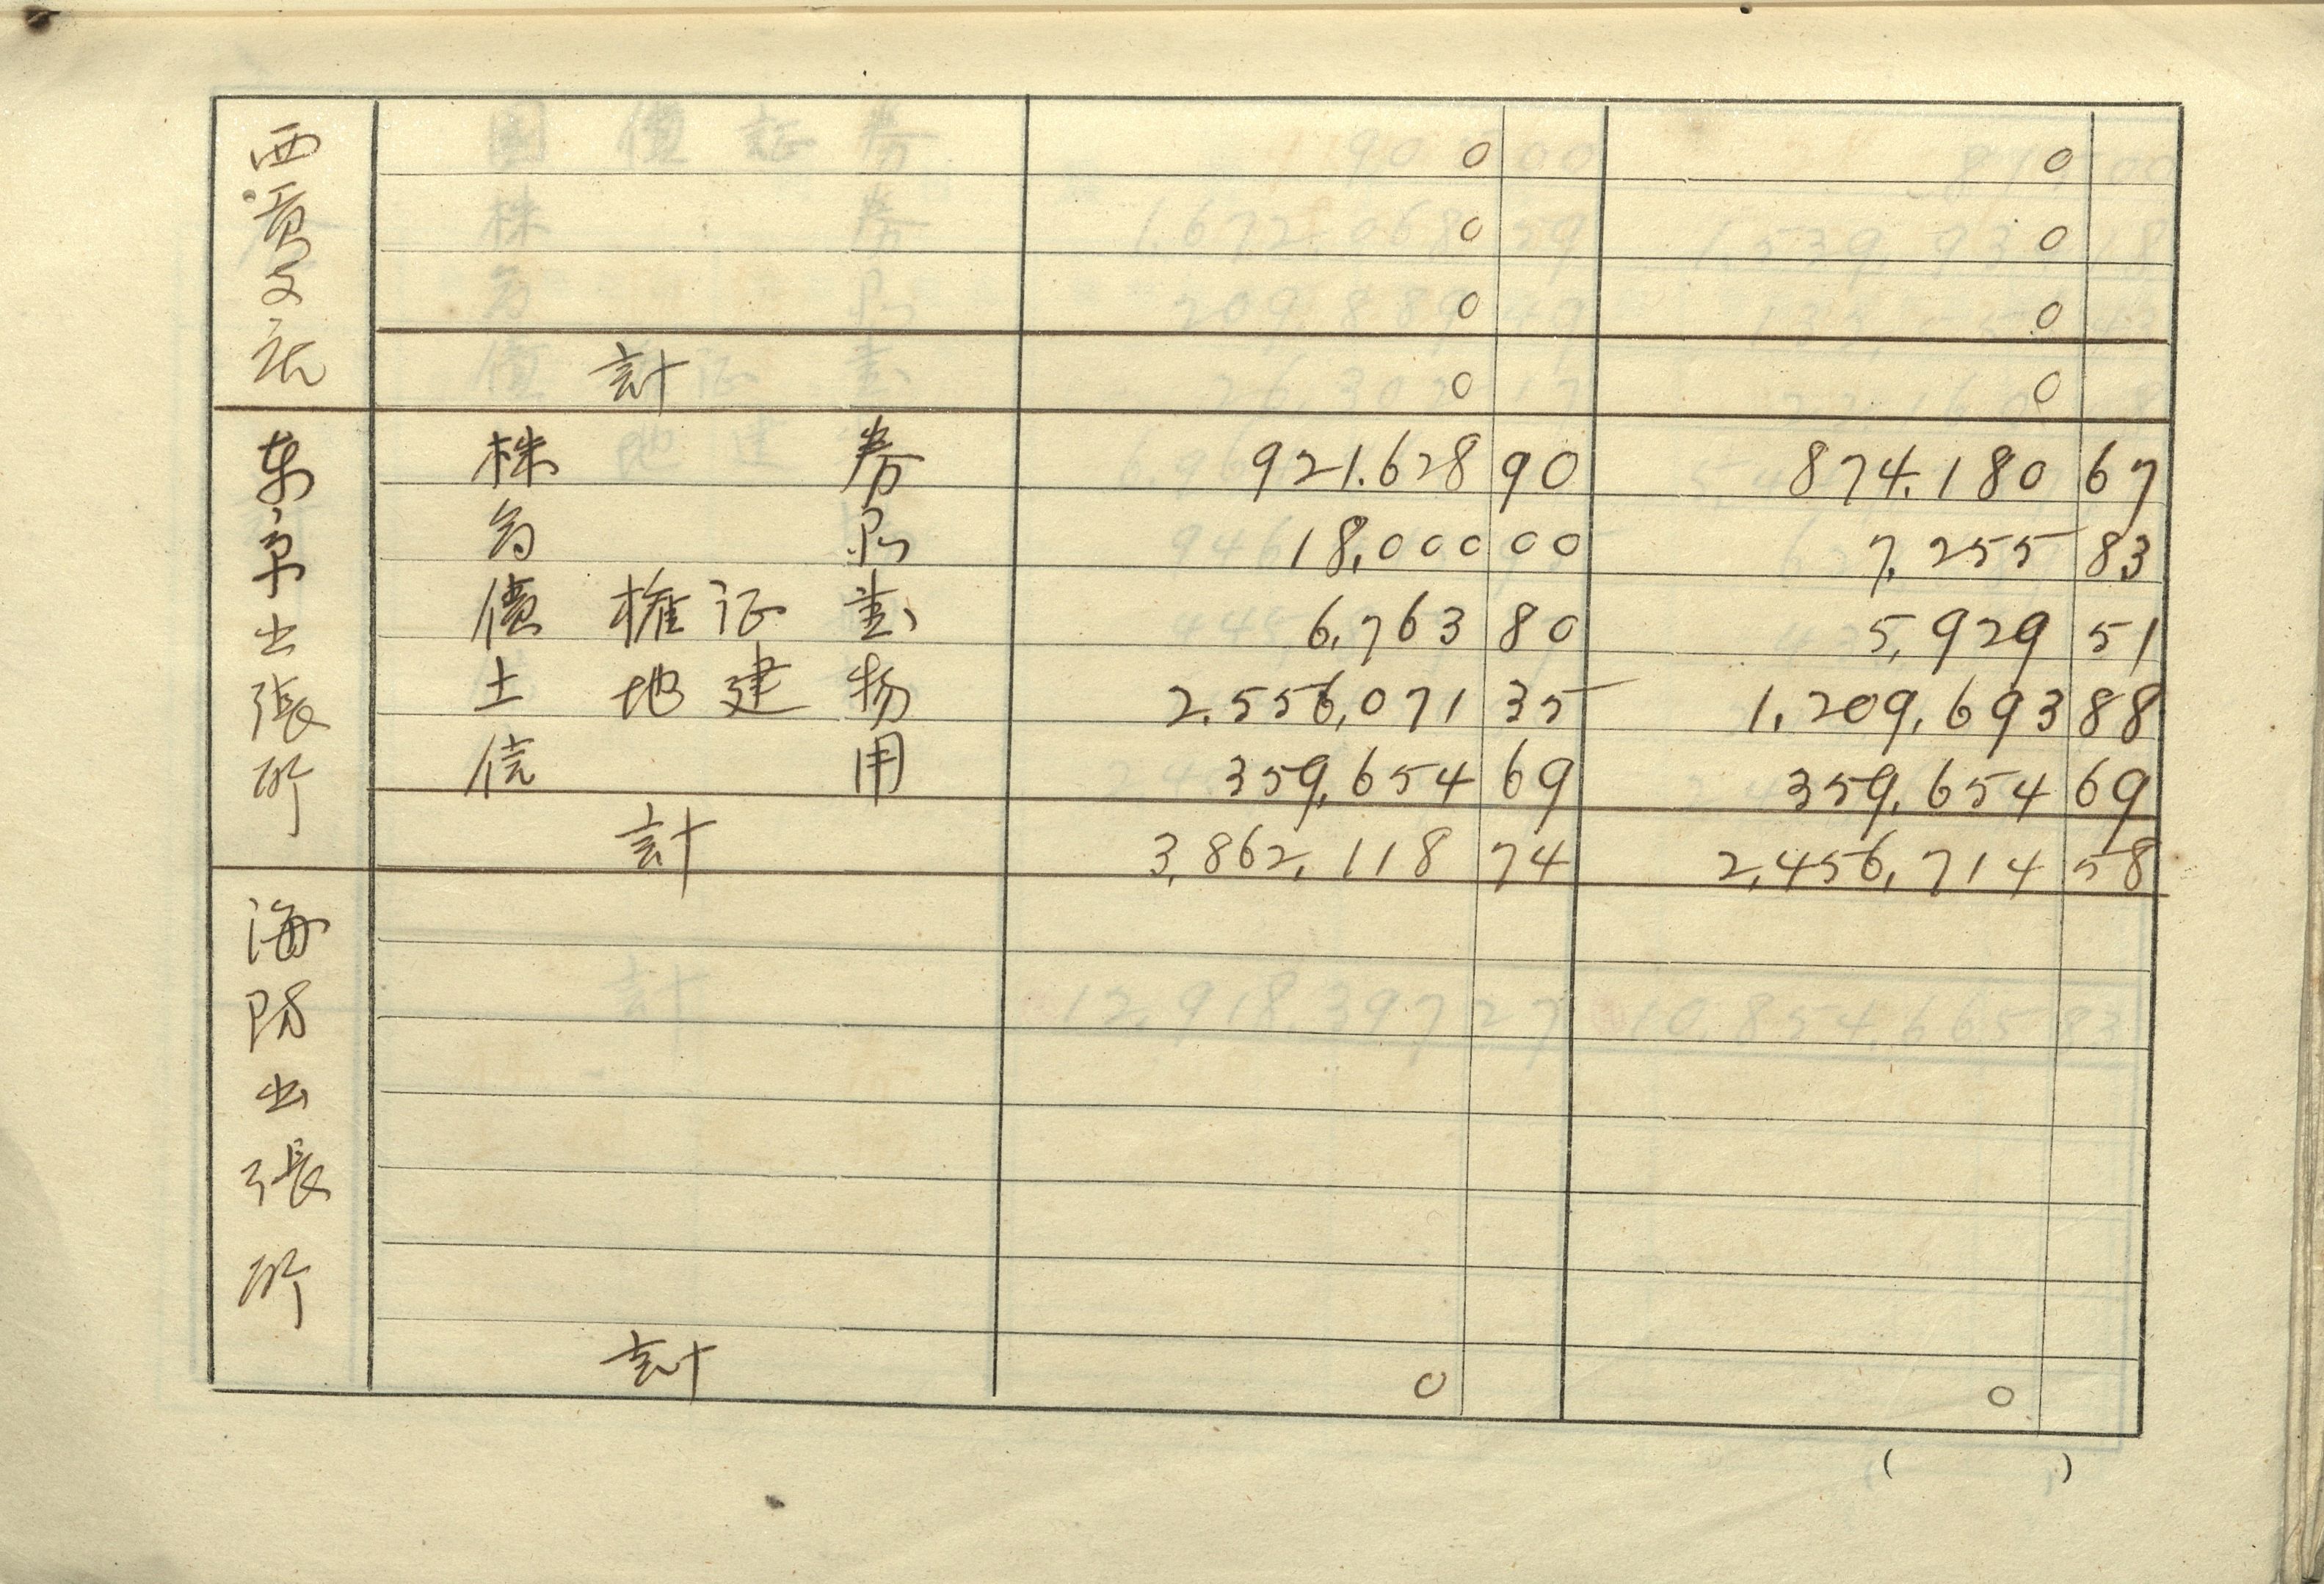 西貢支店
0 0
0 0
0 0
計 0 0
東京出張所
株券 921.628 90 874.180 67
商品 18,000 00 7,255 83
債権証書 6,763 80 5,929 51
土地建物 2.556,071 35 1,209,693 88
信用 359,654 69 359,654 69
計 3,862,118 74 2,456,714 58
海防出張所
計 0 0
( )